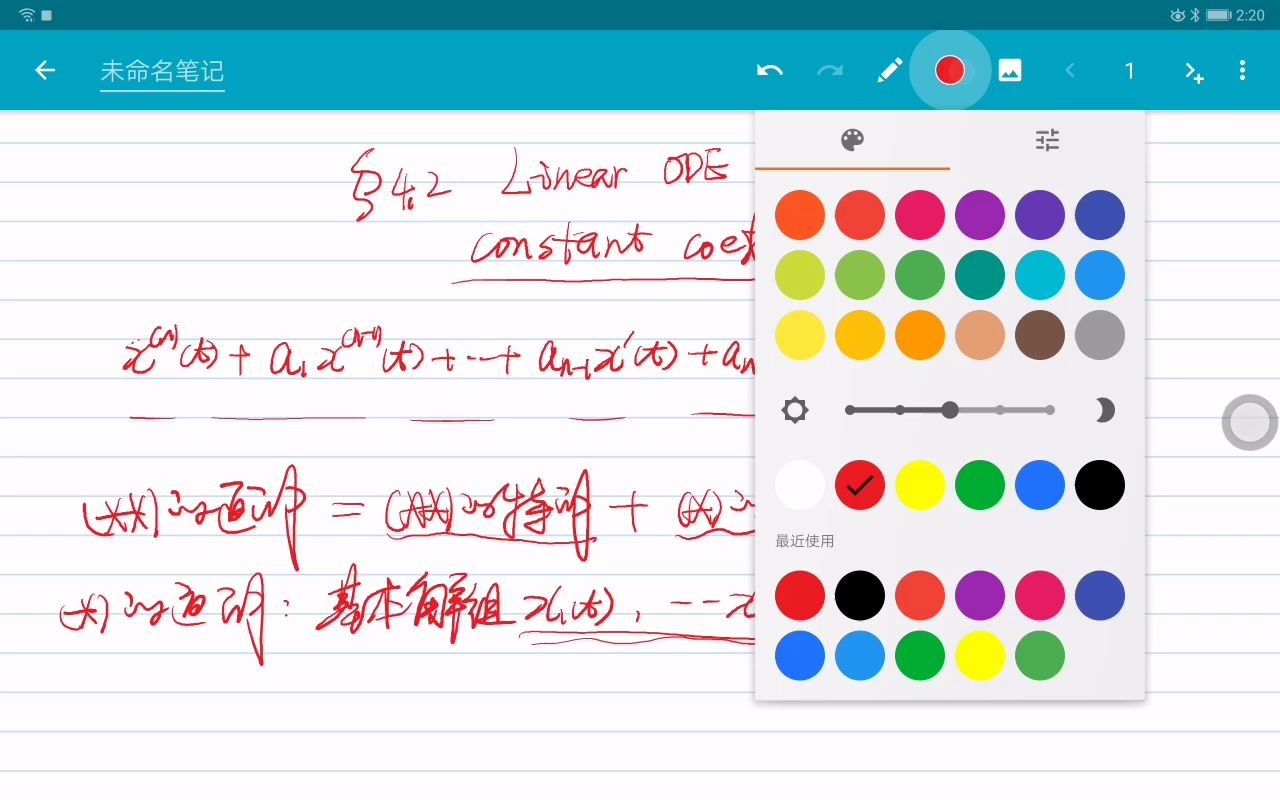 2:20
未命名笔记
1
§4.2 Linear ODE
constant coef
x⁽ⁿ⁾(t) + a₁x⁽ⁿ⁻¹⁾(t) + ⋯ + aₙ₋₁x′(t) + aₙ
(**)的通解 = (**)的特解 + (*)
(*)的通解: 基本解组 x₁(t), ⋯ x
最近使用